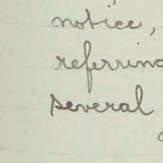 notice,
referring
several